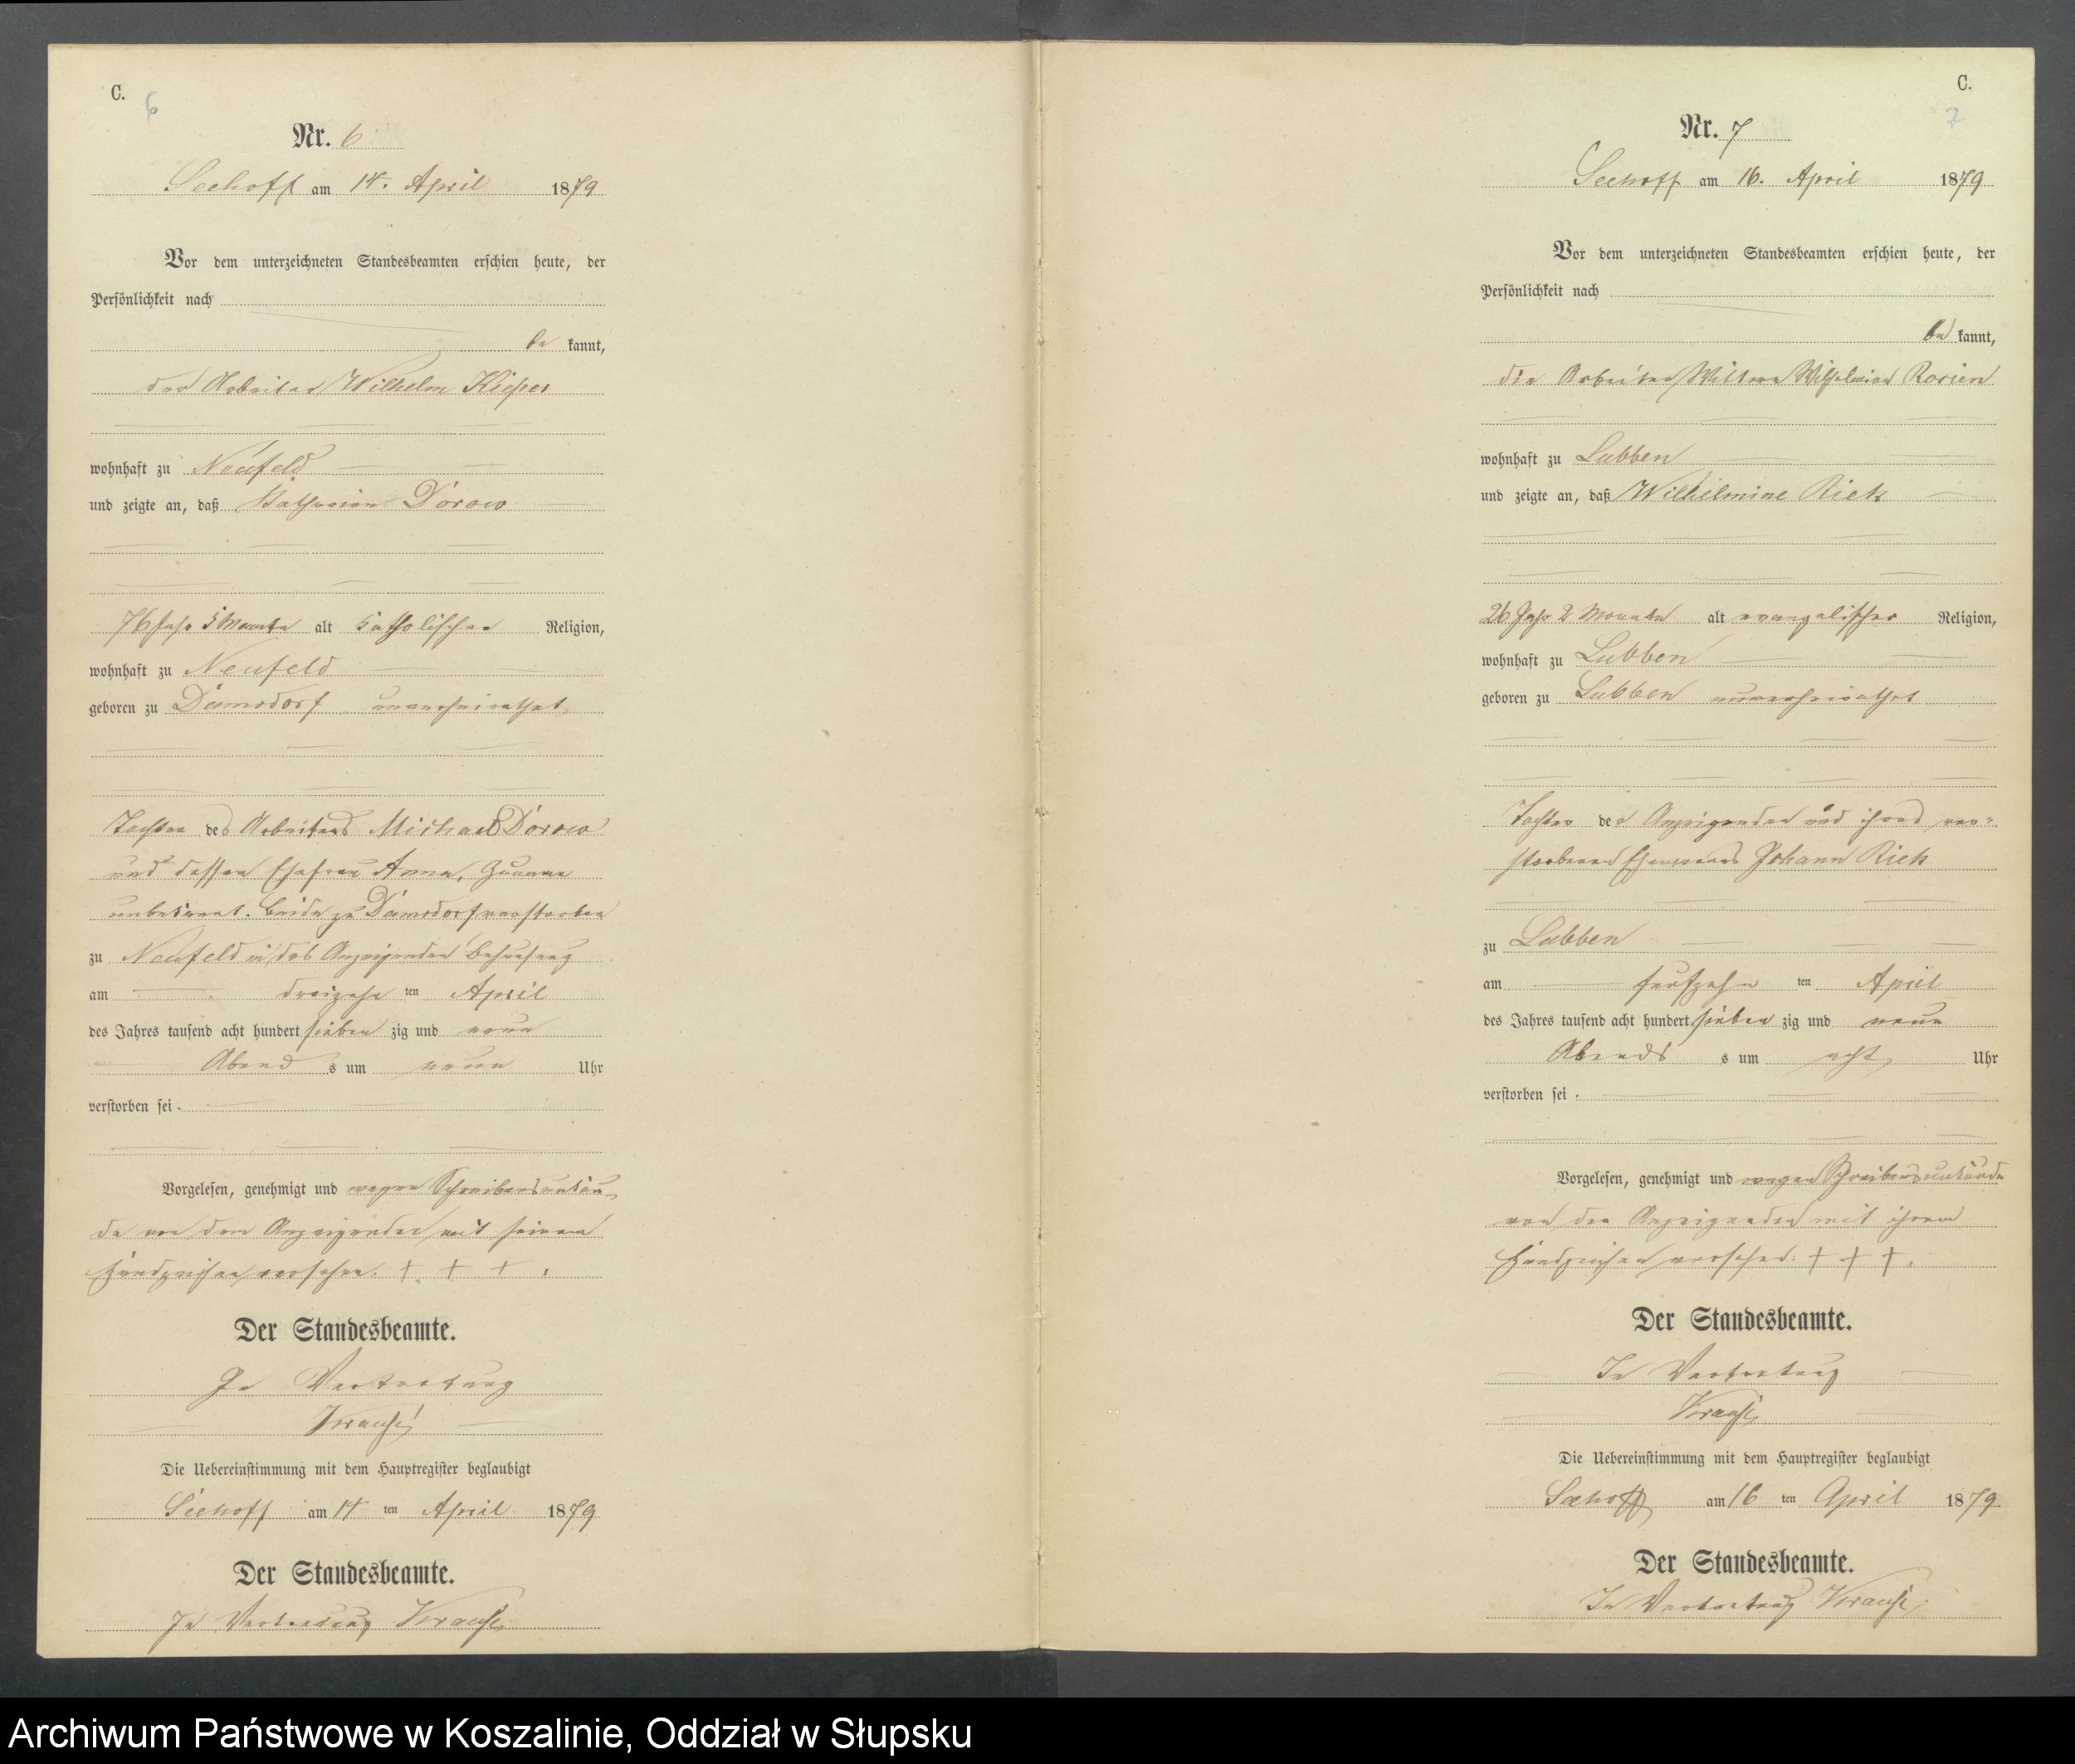 C.
6
Nr. 6
Seehoff am 14. April 1879
Vor dem unterzeichneten Standesbeamten erschien heute, der
Persönlichkeit nach
be kannt,
der Arbeiter Wilhelm Kieper
wohnhaft zu Neufeld
und zeigte an, daß Katharina Dorow
76 Jahr 5 Monate alt katholischer Religion,
wohnhaft zu Neufeld
geboren zu Damsdorf unverheirathet
Tochter des Arbeiters Michael Dorow
und dessen Ehefrau Anna, Zuname
unbekannt. beide zu Damsdorf verstorben
zu Neufeld in des Anzeigenden Behausung
am dreizehn ten April
des Jahres tausend acht hundert sieben zig und neun
Abend s um neun Uhr
verstorben sei.
Vorgelesen, genehmigt und wegen Schreibensunkun-
de von dem Anzeigenden mit seinem
Handzeichen versehen. + + + .
Der Standesbeamte.
In Vertretung
Krause
Die Uebereinstimmung mit dem Hauptregister beglaubigt
Seehoff am 14 ten April 1879
Der Standesbeamte.
In Vertretung Krause
C.
7
Nr. 7
Seehoff am 16. April 1879
Vor dem unterzeichneten Standesbeamten erschien heute, der
Persönlichkeit nach
be kannt,
die Arbeiter Wittwe Wilhelmine
wohnhaft zu Lubben
und zeigte an, daß Wilhelmine Riek
26 Jahr 2 Monate alt evangelischer Religion,
wohnhaft zu Lubben
geboren zu Lubben unverheirathet
Tochter der Anzeigenden und ihres ver=
storbenen Ehemanns Johann Riek
zu Lubben
am funfzehn ten April
des Jahres tausend acht hundert sieben zig und neun
Abends s um acht Uhr
verstorben sei.
Vorgelesen, genehmigt und wegen Schreibensunkunde
von der Anzeigenden mit ihrem
Handzeichen versehen. + + + .
Der Standesbeamte.
In Vertretung
Krause
Die Uebereinstimmung mit dem Hauptregister beglaubigt
Seehoff am 16 ten April 1879.
Der Standesbeamte.
In Vertretung Krause
Archiwum Państwowe w Koszalinie, Oddział w Słupsku